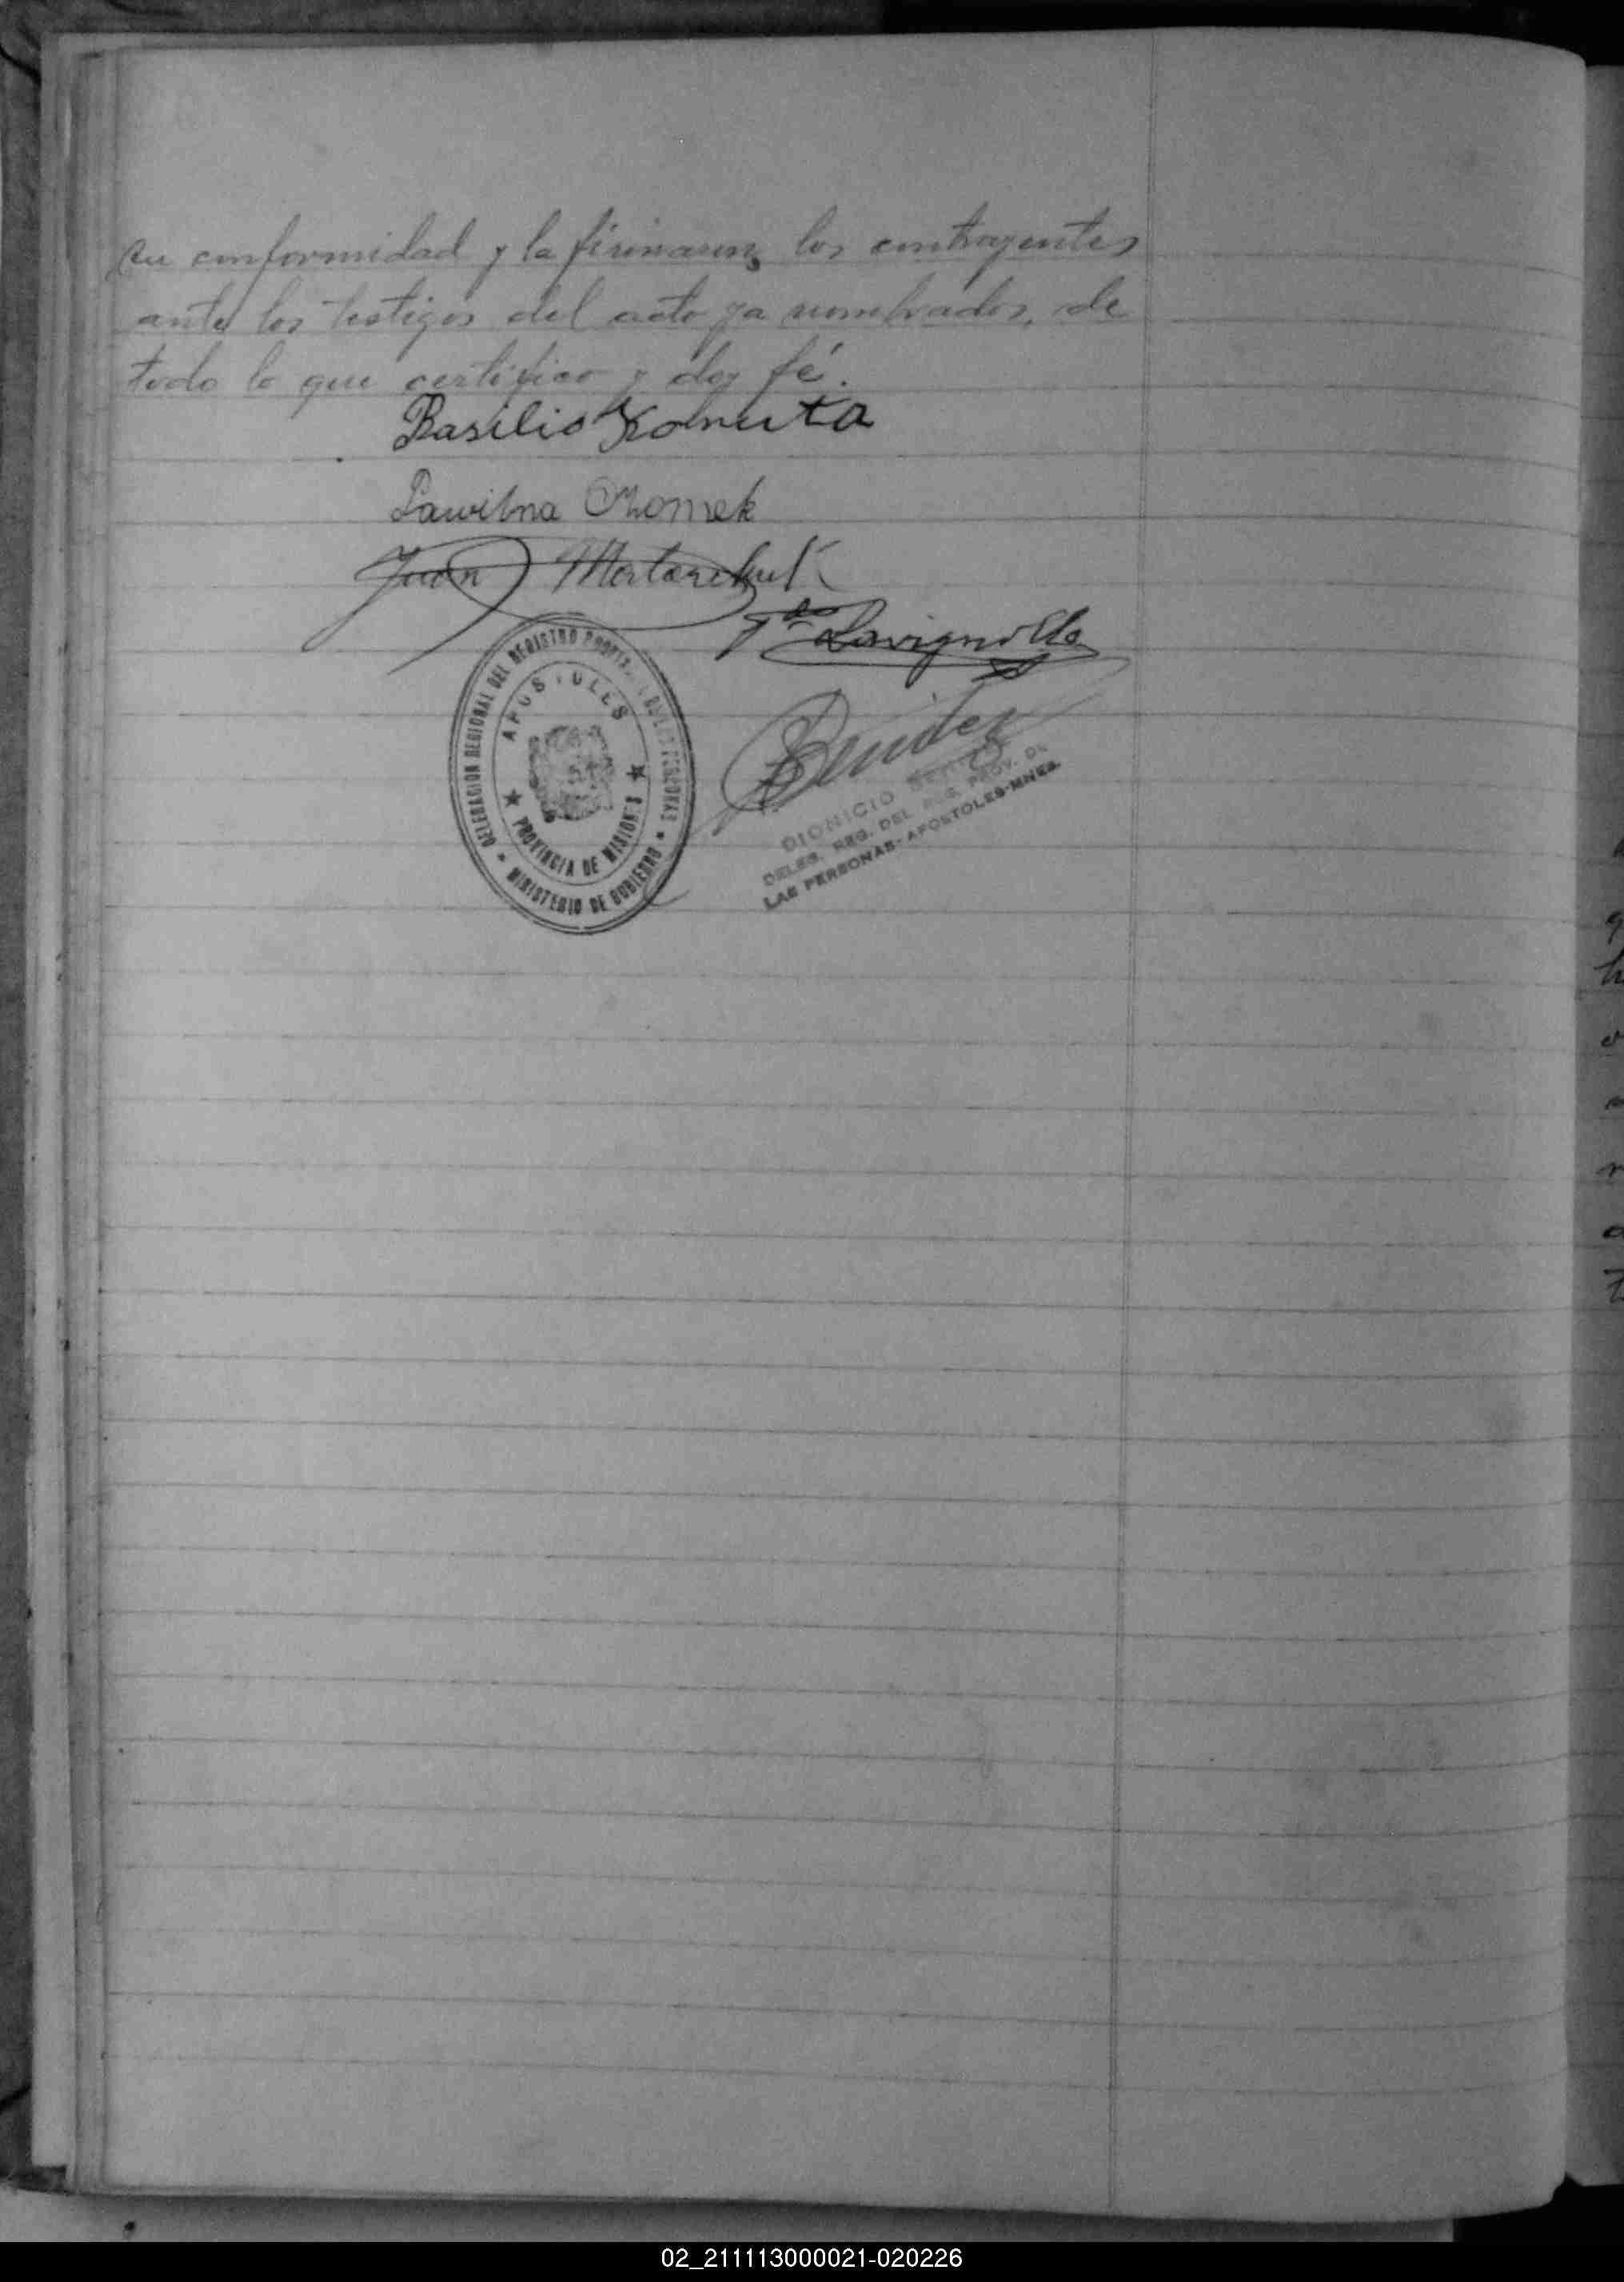 su conformidad y la firmaron, los contrayentes
ante los testigos del acto ya nombrados, de
todo lo que certifico y doy fé.
Basilio Komuta
Pawilna Chomek
Juan
Lavignolle
Benitez
DELEGACION REGIONAL DEL REGISTRO PROV. DE LAS PERSONAS
APOSTOLES
PROVINCIA DE MISIONES
MINISTERIO DE GOBIERNO
DIONICIO BENITEZ
DELEG. REG. DEL REG. PROV. DE
LAS PERSONAS-APOSTOLES-MNES.
02_211113000021-020226